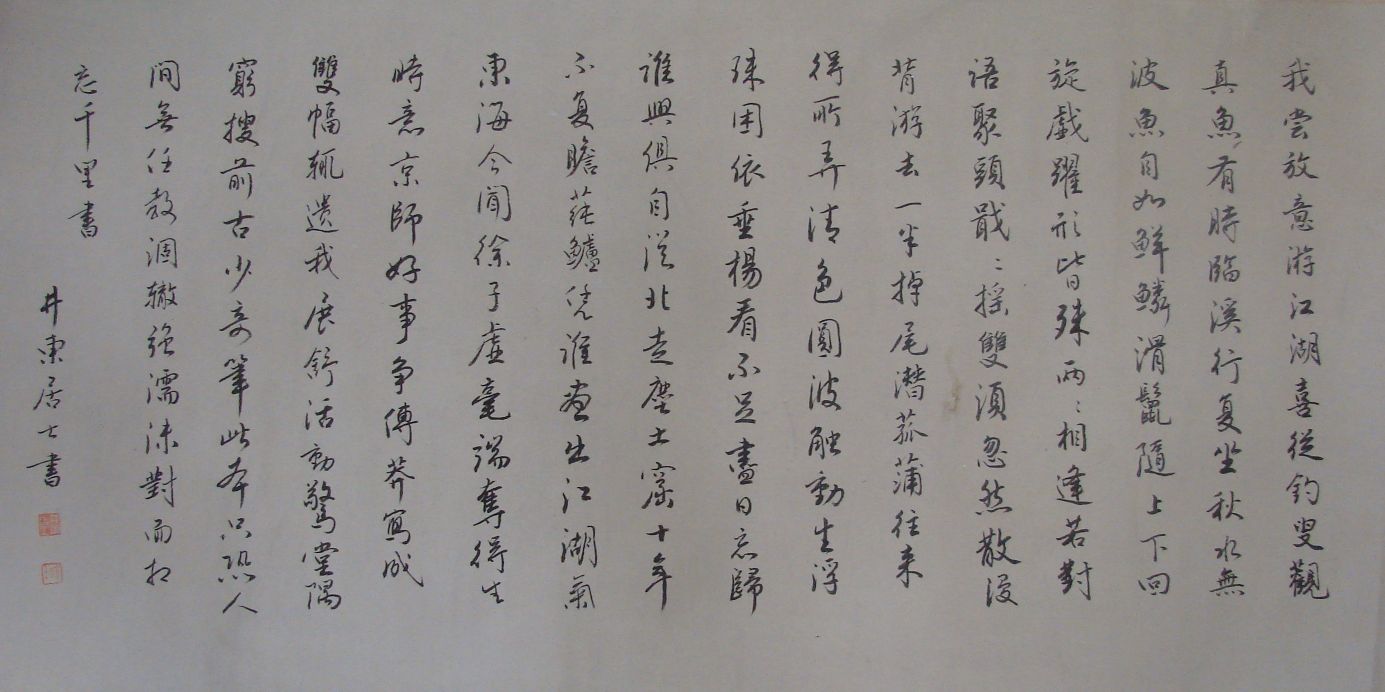 我尝放意游江湖喜從釣叟觀
真魚有時臨溪行复坐秋水無
波魚自如鮮鱗滑鬣隨上下回
旋戲躍形皆殊兩〻相逢若對
語聚頭戢〻摇雙須忽然散漫
背游去一半掉尾潛菰蒲往来
得所弄清色圓波触動生浮
珠困依垂楊看不足盡日忘歸
誰與俱自従北走塵土窟十年
不复瞻莼鱸凭誰画出江湖氣
東海今聞徐子虚毫端奪得生
時意京師好事争傳莽寫成
雙幅輒遗我展舒活動驚堂隅
窮搜前古少奇筆此本只恐人
间無任教涸轍强濡沫對而相
忘千里書
井東居士書